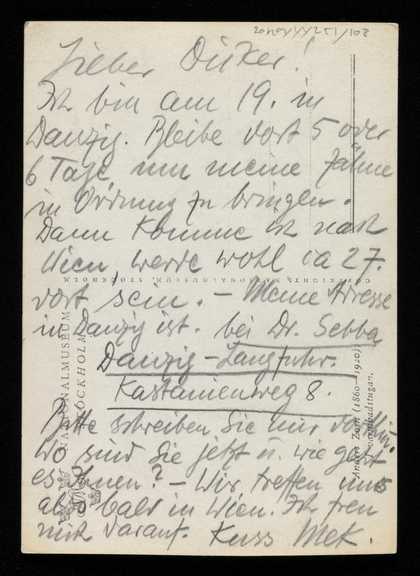 Lieber Dicker!
Ich bin am 19. in
Danzig. Bleibe dort 5 oder
6 Tage um meine Zähne
in Ordnung zu bringen.
Dann komme ich nach
Wien werde wohl ca 27.
dort sein. – Meine Adresse
in Danzig ist. bei Dr. Sebba
Danzig – Langfuhr.
Kastanienweg 8.
Bitte schreiben Sie mir dorthin.
Wo sind Sie jetzt u. wie geht
es Ihnen? – Wir treffen uns
also bald in Wien. Ich freu
mich darauf. Kuss Mek.
NATIONALMUSEUM
STOCKHOLM
Anders Zorn (1860–1920)